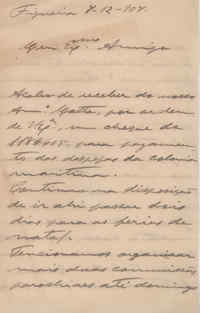 Figueira 7-12-907.
Meu Exmo. Amigo
Acabo de receber do nosso
Amo. Matta, por ordem
de V. Exa., um cheque de
para pagamento
das despezas da colonia
maritima.
Continuo na disposição
de ir ahi passar dois
dias para as ferias de
natal.
Tencionamos organisar
mais duas commissões
parochiaes até domingo